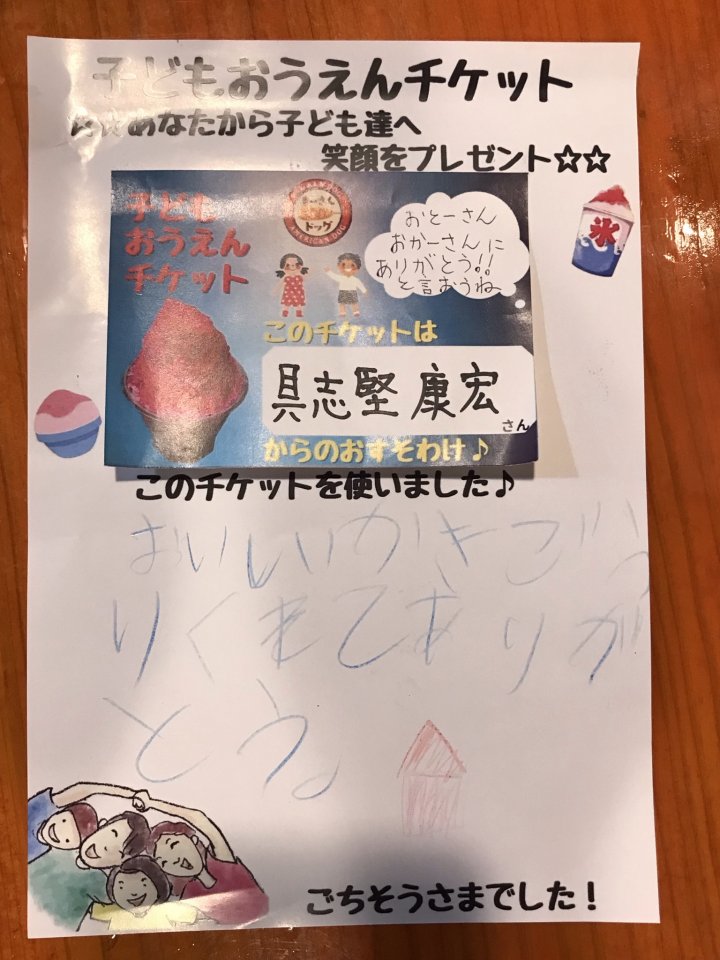 子どもおうえんチケット
☆☆あなたから子ども達へ
笑顔をプレゼント☆☆
子ども
おうえん
チケット
ドッグ
AMERICAN DOG
おとーさん
おかーさんに
ありがとう!!
と言おうね
氷
このチケットは
具志堅 康宏
さん
からのおすそわけ♪
このチケットを使いました♪
おいしいかきごう
りくれてありが
とう。
ごちそうさまでした!